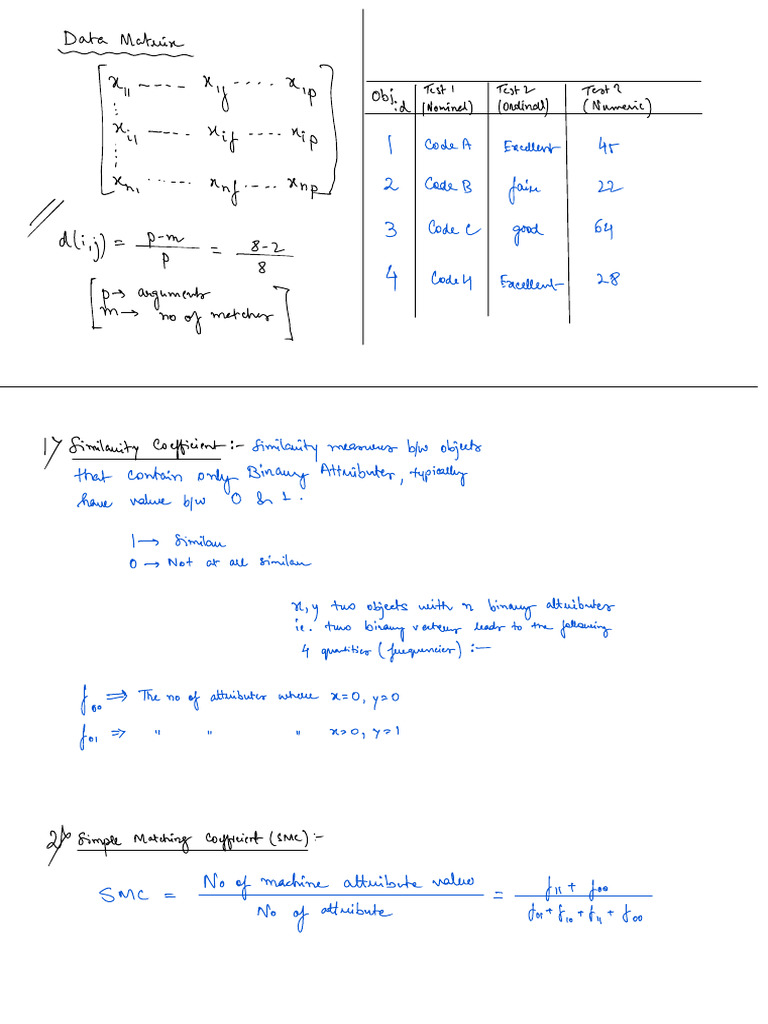 Data Matrix
x11 ---- x1f ···· x1p
⋮
xi1 ---- xif ···· xip
⋮
xn1 ····· xnf ···· xnp
d(i,j) = p-m / p = 8-2 / 8
p → arguments
m → no of matches
Obj. id Test 1 (Nominal) Test 2 (Ordinal) Test 3 (Numeric)
1 Code A Excellent 45
2 Code B fair 22
3 Code C good 64
4 Code H Excellent 28
1) Similarity Coefficient :- Similarity measures b/w objects
that contain only Binary Attributes, typically
have value b/w 0 & 1.
1 → Similar
0 → Not at all similar
x, y two objects with n binary attributes
ie. two binary vectors leads to the following
4 quantities (frequencies) :-
f00 ⇒ The no of attributes where x=0, y=0
f01 ⇒ " " " x=0, y=1
2) Simple Matching Coefficient (SMC) :-
SMC = No of machine attribute value / No of attribute = f11 + f00 / f01 + f10 + f11 + f00